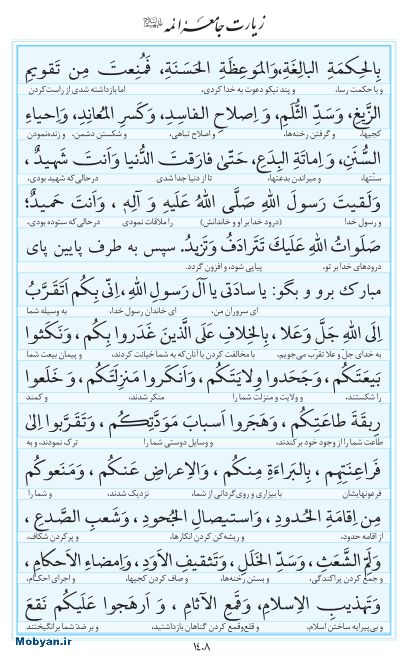 زیارت جامعهٔ ائمه علیهم‌السلام
بِالحِکمَةِ البالِغَةِ،وَالمَوعِظَةِ الحَسَنَةِ، فَمُنِعتَ مِن تَقویمِ
و با حکمت رسا، و پند نیکو دعوت به خدا کردی، اما بازداشته شدی از راست‌کردن
الزَّیغِ، وَسَدِّ الثُّلَمِ، وَ اِصلاحِ الفاسِدِ، وَکَسرِ المُعانِدِ، وَاِحیاءِ
کجیها، و گرفتن رخنه‌ها، و اصلاح تباهی، و شکستن دشمن، و زنده‌نمودن
السُّنَنِ، وَ اِماتَةِ البِدَعِ، حَتّیٰ فارَقتَ الدُّنیا وَاَنتَ شَهیدٌ ،
سنتها، و میراندن بدعتها، تا از دنیا جدا شدی درحالی‌که شهید بودی،
وَلَقیتَ رَسولَ اللهِ صَلَّی اللهُ عَلَیهِ وَ آلِهِ ، وَاَنتَ حَمیدٌ؛
و رسول خدا (درود خدا بر او و خاندانش) را ملاقات نمودی درحالی‌که ستوده بودی،
صَلَواتُ اللهِ عَلَیكَ تَتَرادَفُ وَتَزیدُ. سپس به طرف پایین پای
درودهای خدا بر تو، پیاپی شود، و افزون گردد.
مبارک برو و بگو: یا سادَتی یا آلَ رَسولِ اللهِ،اِنّی بِکُم اَتَقَرَّبُ
ای سروران من، ای خاندان رسول خدا، به وسیله شما
اِلَی اللهِ جَلَّ وَعَلا ، بِالخِلافِ عَلَی الَّذینَ غَدَروا بِکُم ، وَنَکَثوا
به خدای جل و علا تقرب می‌جویم، با مخالفت کردن با آنان‌که به شما خیانت کردند، و پیمان بیعت شما
بَیعَتَکُم ، وَجَحَدوا وِلایَتَکُم ، وَاَنکَروا مَنزِلَتَکُم ، وَ خَلَعوا
را شکستند، و ولایت و منزلت شما را منکر شدند، و کمند
رِبقَةَ طاعَتِکُم ، وَهَجَروا اَسبابَ مَوَدَّتِکُم ، وَتَقَرَّبوا اِلیٰ
طاعت شما را از وجود خود برکندند، و وسایل دوستی شما را ترک نمودند، و به
فَراعِنَتِهِم ، بِالبَراءَةِ مِنکُم ، وَالاِعراضِ عَنکُم ، وَمَنَعوکُم
فرعونهایشان با بیزاری و روی‌گردانی از شما، نزدیک شدند، و شما را
مِن اِقامَةِ الحُدودِ ، وَاستیصالِ الجُحودِ ، وَشَعبِ الصَّدعِ ،
از اقامه حدود، و ریشه‌کن کردن انکارها، و پرکردن شکاف،
وَلَمِّ الشَّعَثِ، وَسَدِّ الخَلَلِ، وَتَثقیفِ الاَوَدِ، وَاِمضاءِ الاَحکامِ،
و جمع کردن پراکندگی، و بستن رخنه‌ها، و صاف کردن کجیها، و اجرای احکام،
وَتَهذیبِ الاِسلامِ، وَقَمعِ الآثامِ ، وَ اَرهَجوا عَلَیکُم نَقعَ
و بی‌پیرایه ساختن اسلام، و قلع‌وقمع کردن گناهان بازداشتند، و بر ضد شما برانگیختند
۱۴۰۸
Mobyan.ir